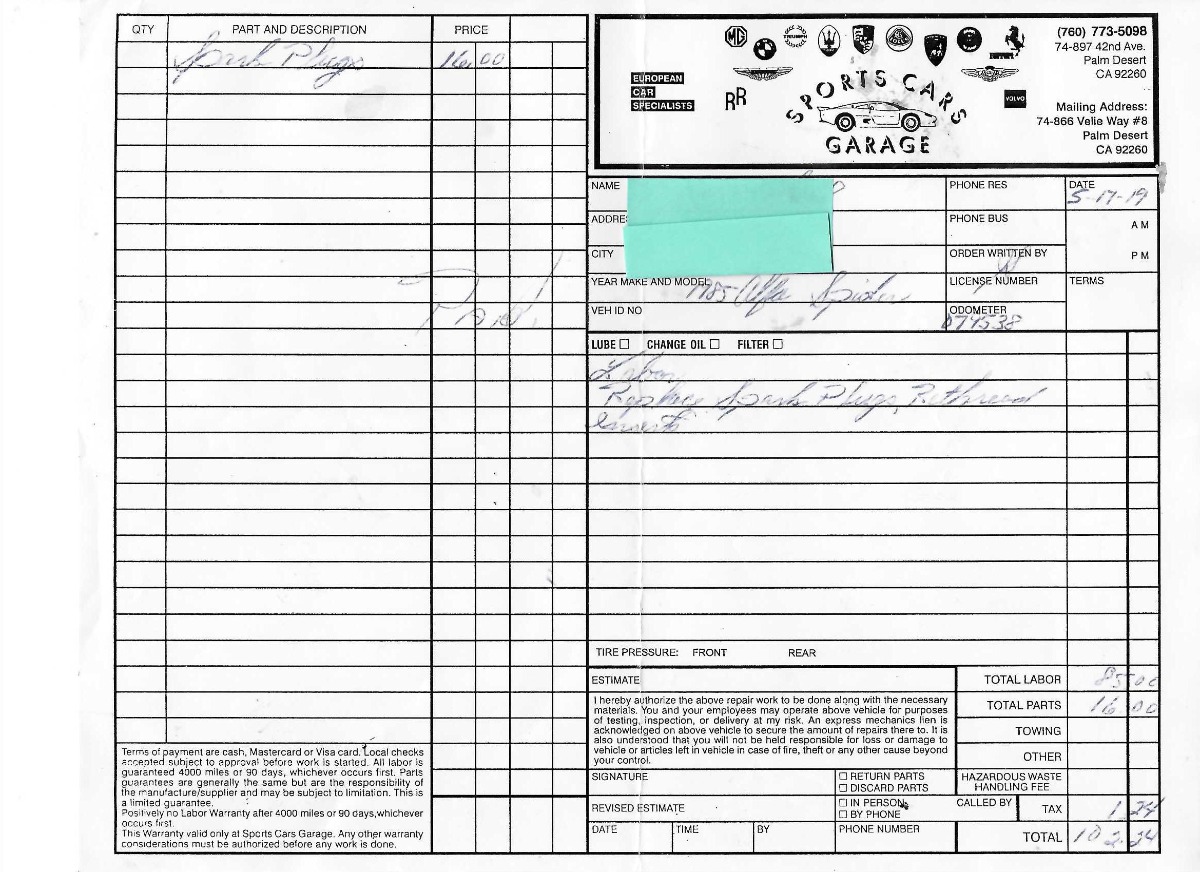 QTY PART AND DESCRIPTION PRICE
Spark Plugs 16.00
Paid
Terms of payment are cash, Mastercard or Visa card. Local checks
accepted subject to approval before work is started. All labor is
guaranteed 4000 miles or 90 days, whichever occurs first. Parts
guarantees are generally the same but are the responsibility of
the manufacture/supplier and may be subject to limitation. This is
a limited guarantee.
Positively no Labor Warranty after 4000 miles or 90 days,whichever
occurs first.
This Warranty valid only at Sports Cars Garage. Any other warranty
considerations must be authorized before any work is done.
EUROPEAN
CAR
SPECIALISTS
MG
TRIUMPH
RR
VOLVO
SPORTS CARS
GARAGE
(760) 773-5098
74-897 42nd Ave.
Palm Desert
CA 92260
Mailing Address:
74-866 Velie Way #8
Palm Desert
CA 92260
NAME PHONE RES DATE
5-17-19
ADDRE PHONE BUS A M
CITY ORDER WRITTEN BY P M
YEAR MAKE AND MODEL 1985 Alfa Spider LICENSE NUMBER TERMS
VEH ID NO ODOMETER
074538
LUBE CHANGE OIL FILTER
Labor
Replace Spark Plugs, Rethread
Inserts
TIRE PRESSURE: FRONT REAR
ESTIMATE
I hereby authorize the above repair work to be done along with the necessary
materials. You and your employees may operate above vehicle for purposes
of testing, inspection, or delivery at my risk. An express mechanics lien is
acknowledged on above vehicle to secure the amount of repairs there to. It is
also understood that you will not be held responsible for loss or damage to
vehicle or articles left in vehicle in case of fire, theft or any other cause beyond
your control.
SIGNATURE RETURN PARTS
DISCARD PARTS
REVISED ESTIMATE IN PERSON CALLED BY
BY PHONE
DATE TIME BY PHONE NUMBER
TOTAL LABOR 85 00
TOTAL PARTS 16 00
TOWING
OTHER
HAZARDOUS WASTE
HANDLING FEE
TAX 1 24
TOTAL 102.24